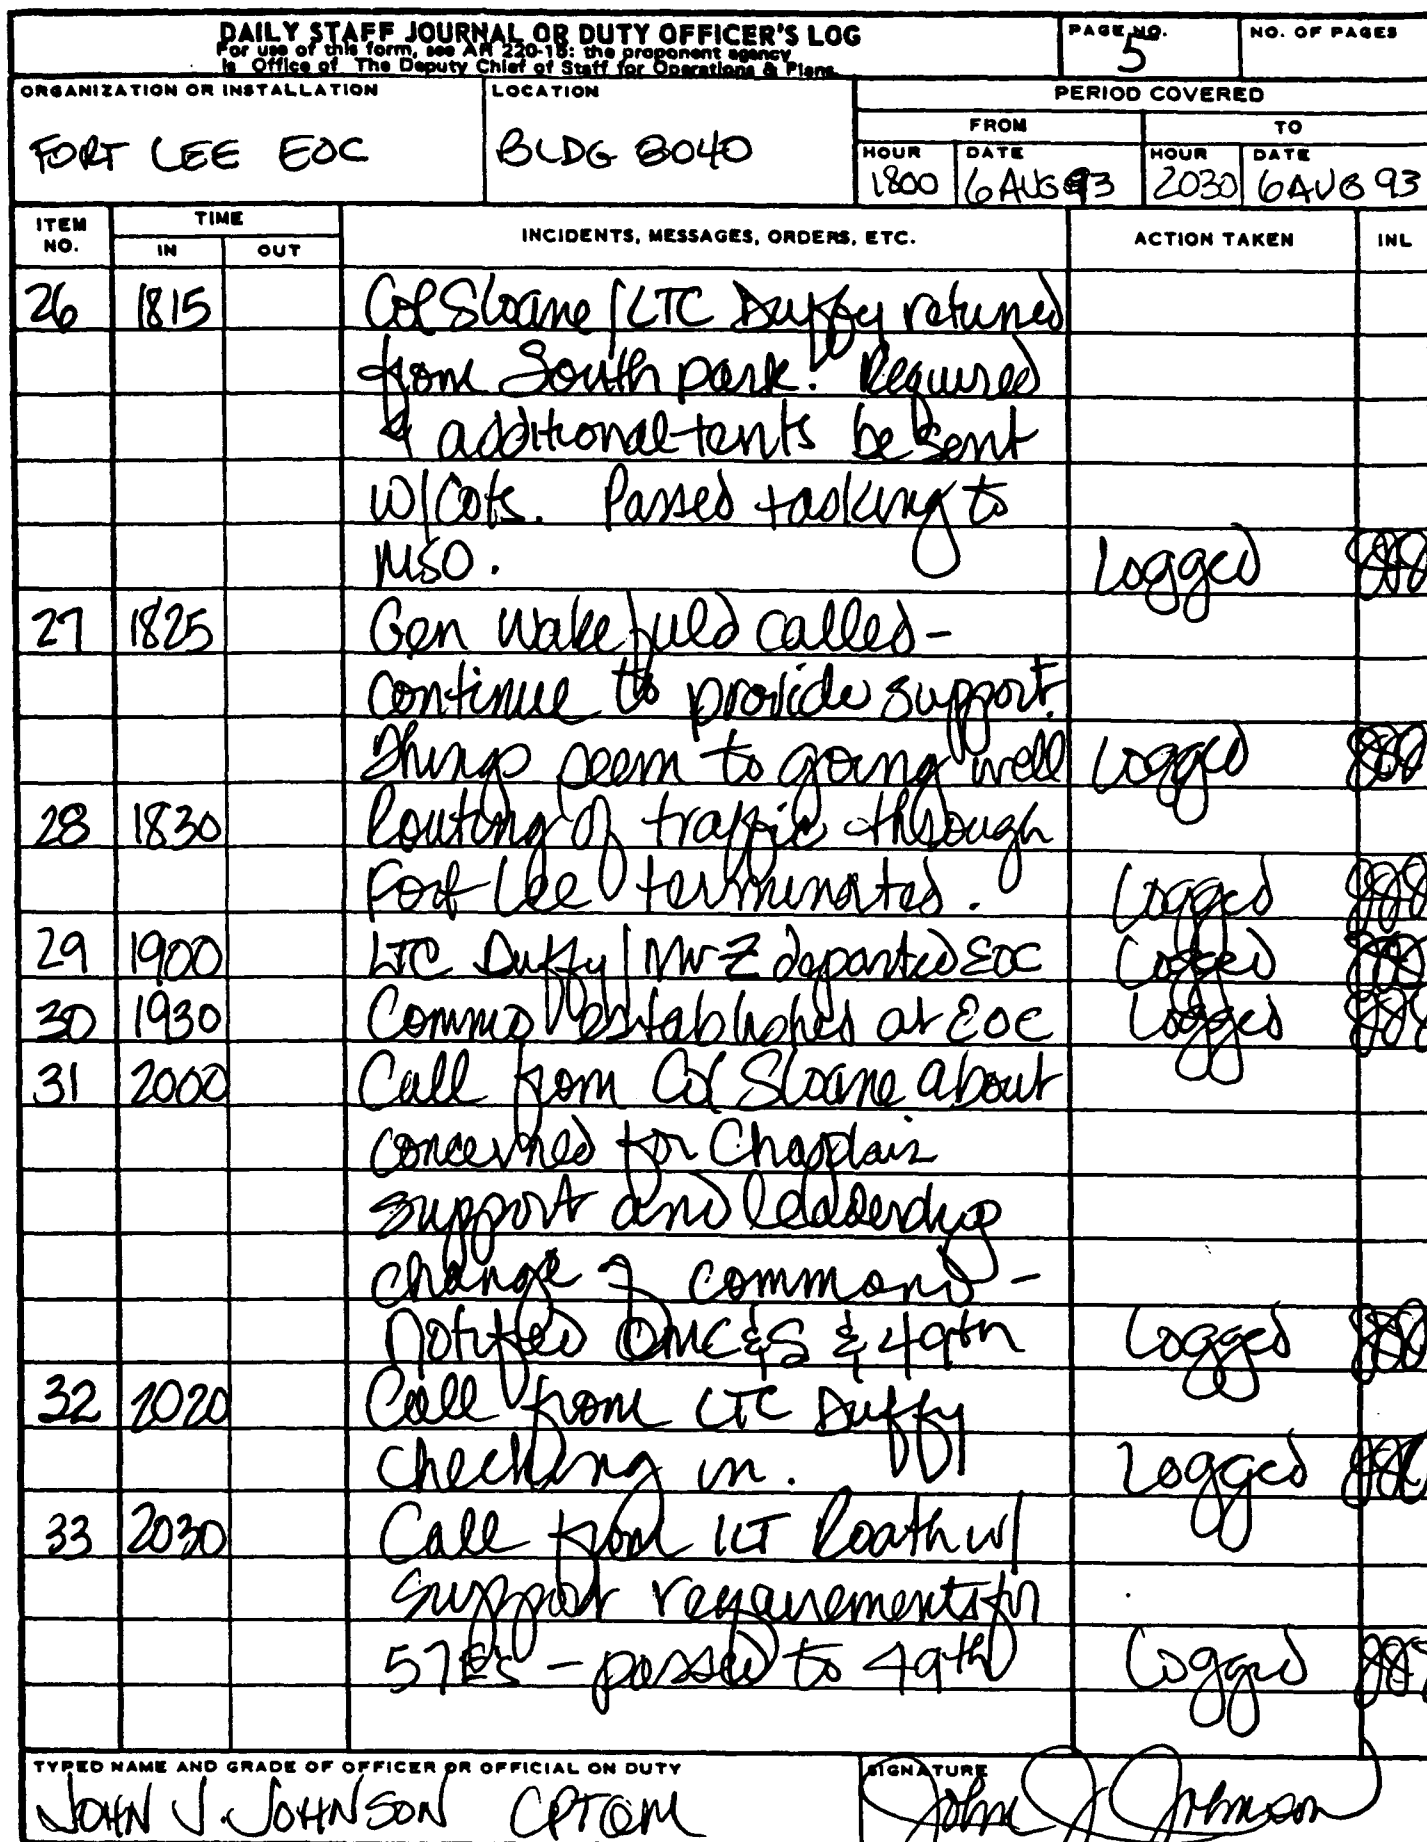 DAILY STAFF JOURNAL OR DUTY OFFICER'S LOG
For use of this form, see AR 220-15; the proponent agency
is Office of The Deputy Chief of Staff for Operations & Plans.
PAGE NO.
5
NO. OF PAGES
ORGANIZATION OR INSTALLATION
FORT LEE EOC
LOCATION
BLDG 8040
PERIOD COVERED
FROM
TO
HOUR
1800
DATE
6 AUG 93
HOUR
2030
DATE
6 AUG 93
ITEM NO.
TIME
IN
OUT
INCIDENTS, MESSAGES, ORDERS, ETC.
ACTION TAKEN
INL
26 1815 Col Sloane / LTC Duffy returned
from South park. Required
4 additional tents be sent
w/Cots. Passed tasking to
MSO. Logged
27 1825 Gen Wakefield called -
continue to provide support.
Things seem to going well Logged
28 1830 Routing of traffic through
Fort Lee terminated. Logged
29 1900 LTC Duffy / Mr Z departed EOC Logged
30 1930 Commo established at EOC Logged
31 2000 Call from Col Sloane about
concerned for Chaplain
support and leadership
change of command -
Notified QMC&S & 49th Logged
32 2020 Call from LTC Duffy
checking in. Logged
33 2030 Call from 1LT Roath w/
support requirements for
57Es - passed to 49th Logged
TYPED NAME AND GRADE OF OFFICER OR OFFICIAL ON DUTY
JOHN J. JOHNSON CPT QM
SIGNATURE
John J Johnson